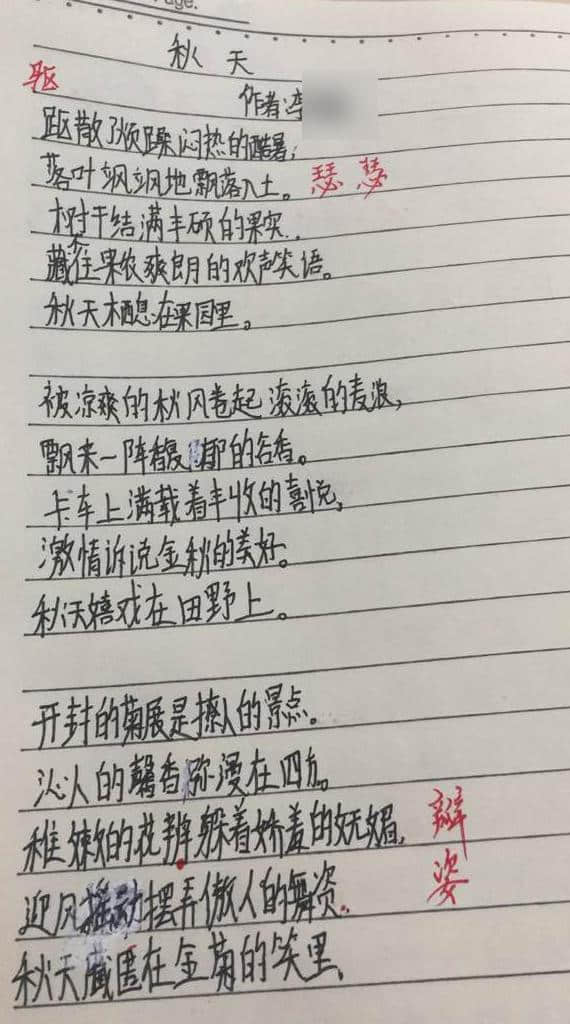 Page.
秋天
驱
作者:李
驱散了烦躁闷热的酷暑,
落叶飒飒地飘落入土。瑟瑟
树干结满丰硕的果实,
藏在果农爽朗的欢声笑语。
秋天栖息在果园里。
被凉爽的秋风卷起滚滚的麦浪,
飘来一阵馥郁的谷香。
卡车上满载着丰收的喜悦,
激情诉说金秋的美好。
秋天嬉戏在田野上。
开封的菊展是撩人的景点。
沁人的馨香弥漫在四方。
稚嫩的花辨躲着娇羞的妩媚,瓣
迎风摇动摆弄傲人的舞资。姿
秋天藏匿在金菊的笑里,